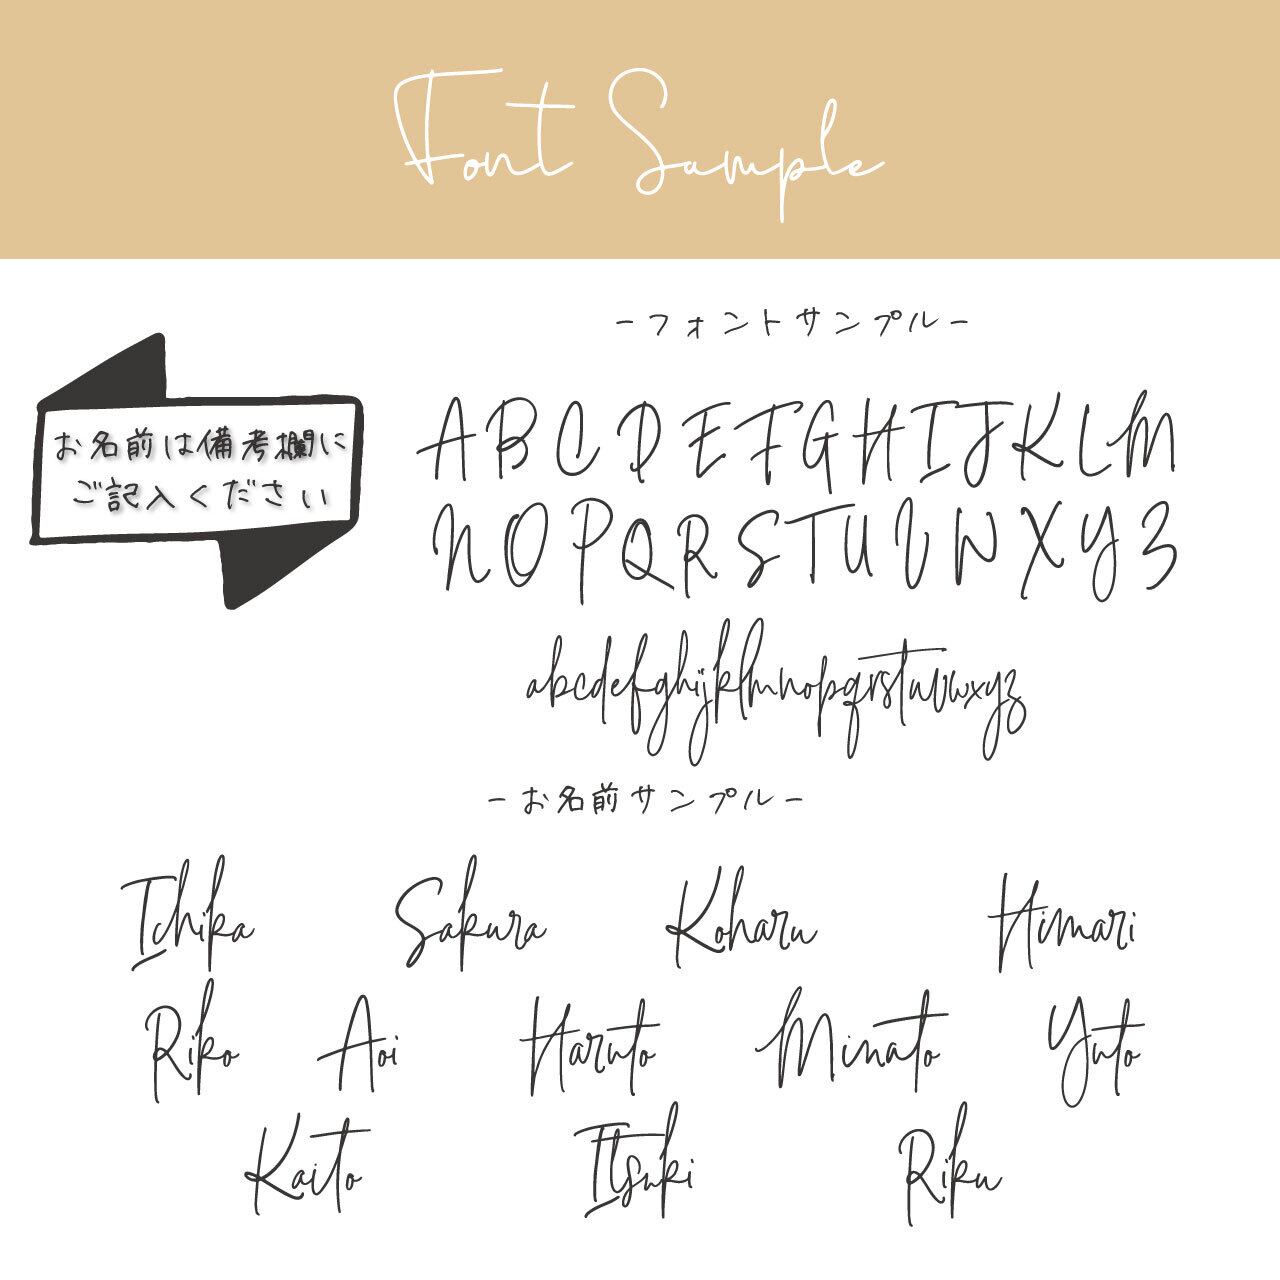 Font Sample
-フォントサンプル-
お名前は備考欄に
ご記入ください
ABCDEFGHIJKLM
NOPQRSTUVWXYZ
abcdefghijklmnopqrstuvwxyz
-お名前サンプル-
Ichika Sakura Koharu Himari
Riko Aoi Haruto Minato Yuto
Kaito Itsuki Riku